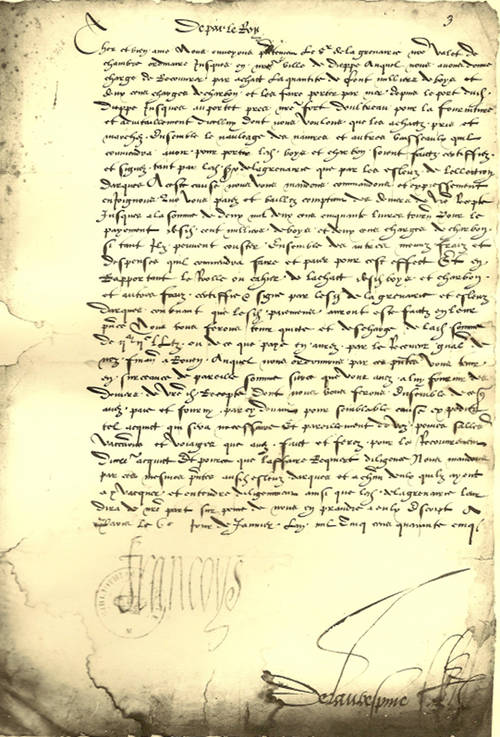 3
De par le Roy
Cher et bien amé Nous envoyons presentement le Sr de la grenarie nre valet de
chambre ordinaire Jusques en nre ville de Dieppe Auquel nous avons donné
charge de Recouvrer par achatt La quantité de cent milliers de boys et
deux cens charges de charbon et les faire porter par mer depuis le port dud.
Dieppe Jusques au port et pres nre fort doultreau pour la fourniture
et avitaillement dicelluy dont nous voulons que les achatz pris et
marchez Ensemble le nauleage des navires et autres vaisseaulx quil
conviendra avoir pour porter lesd. boys et charbon soient faictz certiffiez
et signez tant par led. Sr de la grenarie que par les esleuz de lellection
darques A ceste cause nous vous mandons commandons et expressement
enjoignons que vous payez et baillez comptant des deniers de vre Recepte
Jusques a la somme de deux mil deux cens cinquante livres tourn. pour le
payement desd. cent milliers de boys et deux cens charges de charbon
si tant Ilz peuvent couster Ensemble des autres menuz fraiz et
despenses quil conviendra faire et payer pour cest effect Et en
Rapportant le Rolle ou cahier de lachatt desd. boys et charbon
et autres fraiz certiffié et signé par led. Sr de la grenarie et esleuz
darques contenant que lesd. paiemens auront esté faictz en leur
pnce Nous vous ferons tenir quicte et deschargé de lad. somme
de ou de ce que payé en aurez par le Receveur gnal de
noz finan. a Rouen Auquel nous ordonnons par ces pntes vous tenir
en surceance de pareille somme
deniers de vre d. Recepte Dont nous vous ferons Ensemble de ce
que avez payé et fourny par cy devant pour semblable cause expedier
tel acquict qui sera necessaire Et pareillement de voz peines salles
vaccacions et voiages que avez faict et ferez pour le Recouvrement
dud. acquict Et pource que laffaire Requiert diligence Nous mandons
par ces mesmes pntes ausd. esleuz darques et a chacun deulx quilz ayent
a y vacquer et entendre diligemment ainsi que led. de la grenarie leur
dira de nre part sur peine de nous en prandre a eulx Escript a
Paris le 6e Jour de Janvier Lan mil cinq cens quarante cinq
Françoys
Delaubespine